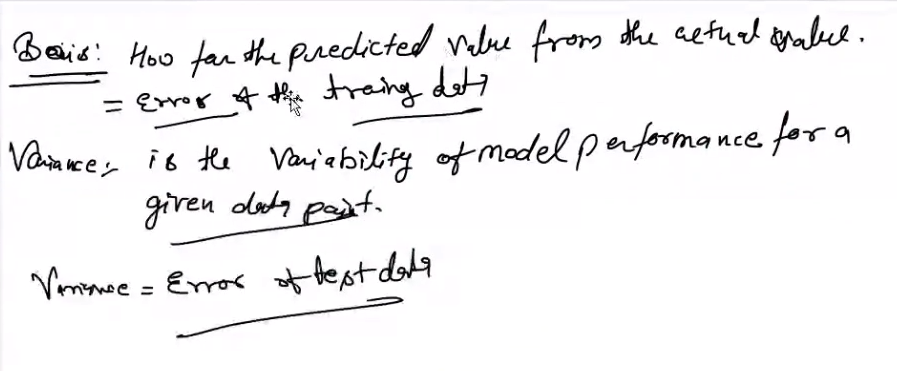 Bais: How far the predicted value from the actual value.
= Error of the traing data
Variance: is the Variability of model performance for a
given data point.
Variance = Error of test data